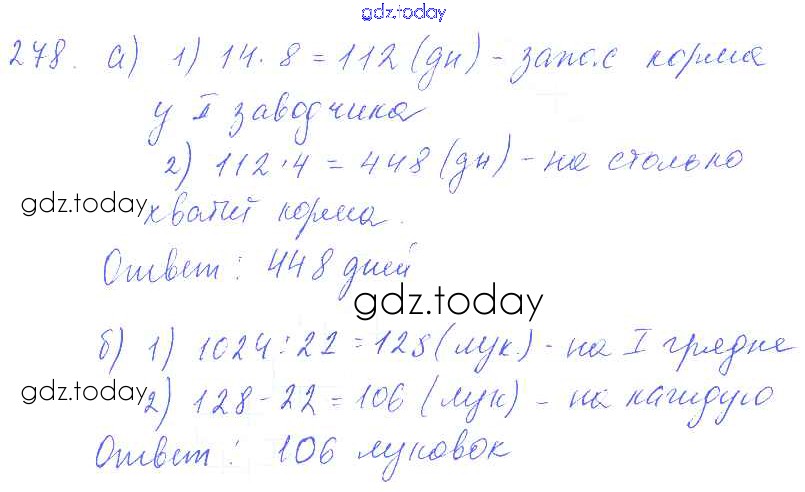 gdz.today
278. а) 1) 14 · 8 = 112 (дн) - запас корма
у I заводчика
2) 112 · 4 = 448 (дн) - на столько
gdz.today хватит корма.
Ответ: 448 дней
gdz.today
б) 1) 1024 : 22 = 128 (лук.) - на I грядке
gdz.today 2) 128 - 22 = 106 (лук) - на каждую
Ответ: 106 луковок